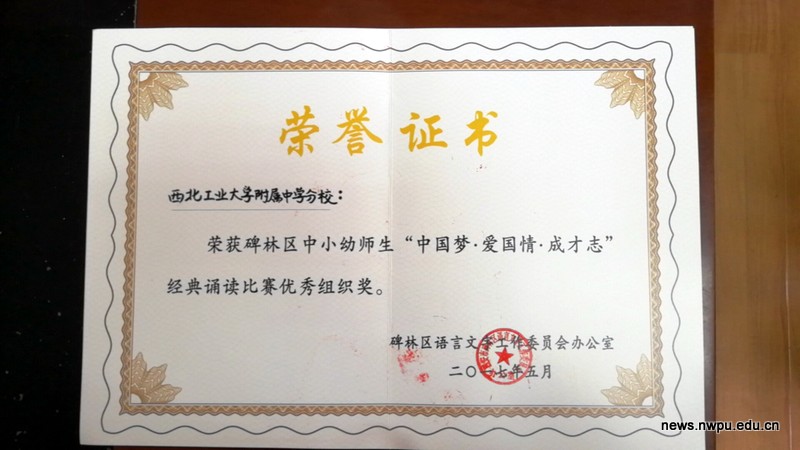 荣誉证书
西北工业大学附属中学分校：
荣获碑林区中小幼师生“中国梦·爱国情·成才志”
经典诵读比赛优秀组织奖。
碑林区语言文字工作委员会办公室
二〇一七年五月
news.nwpu.edu.cn